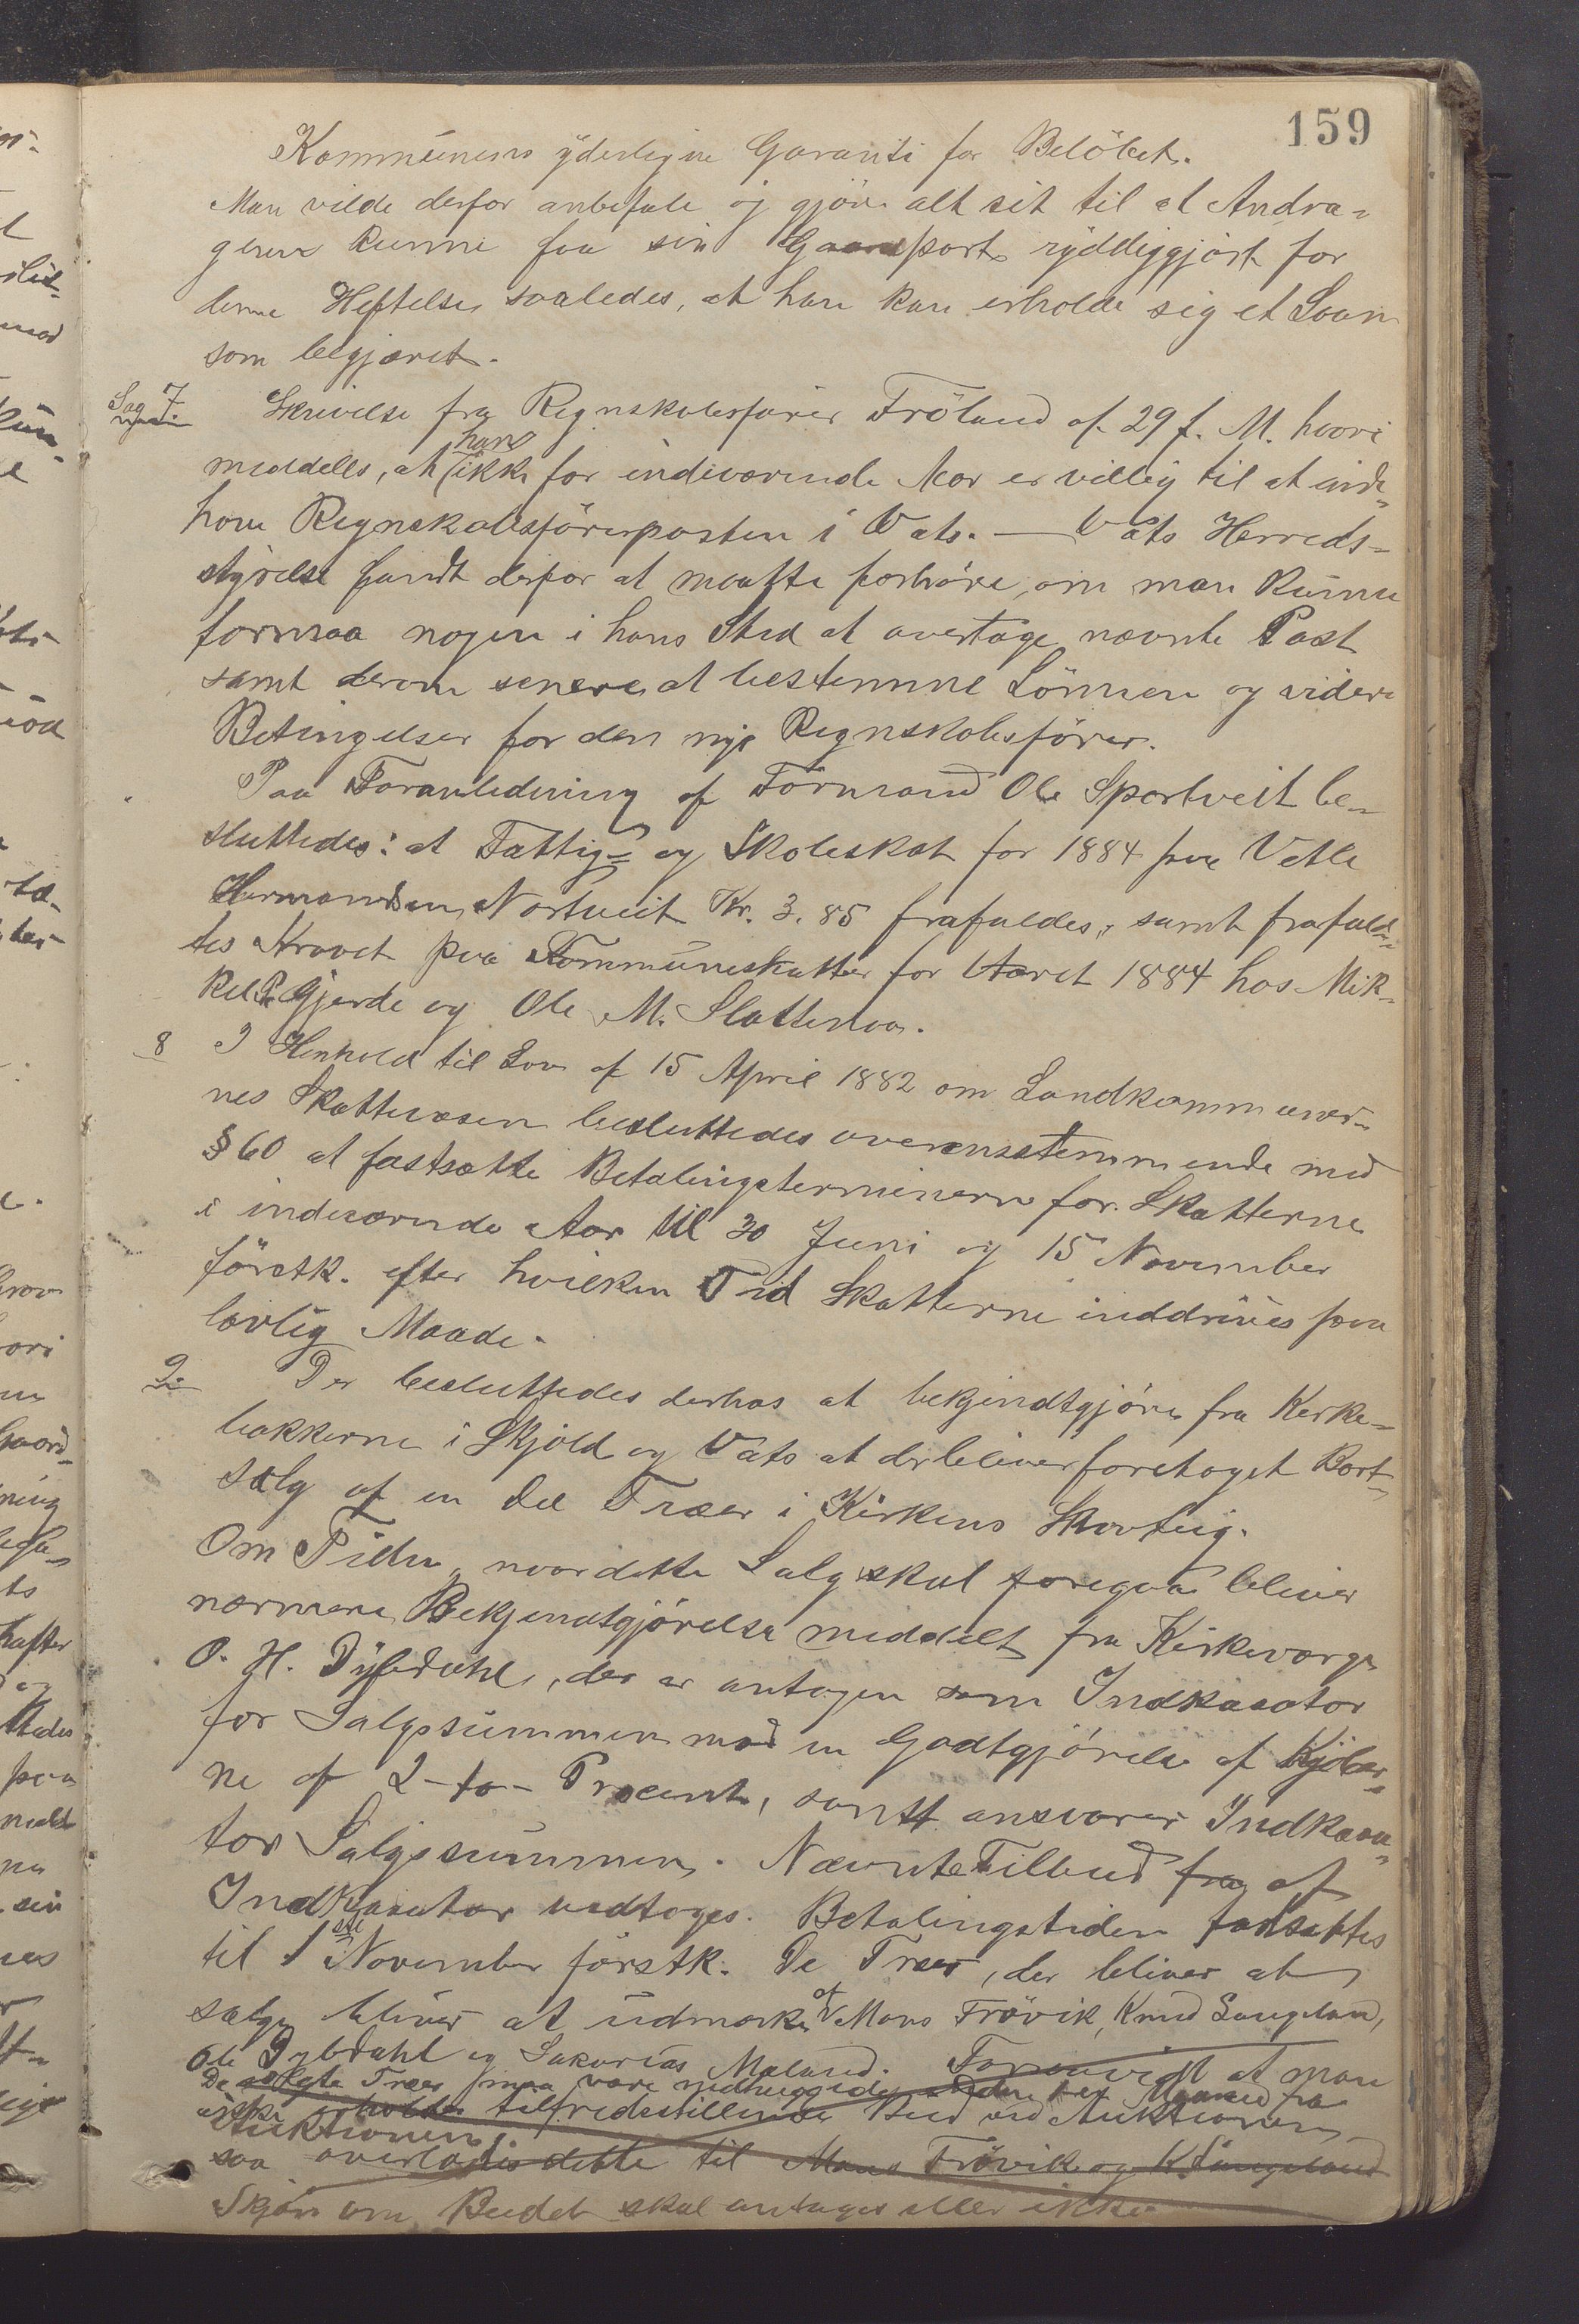 159
Kommunens yderligere Garanti for Belöbet.
Man vilde derfor anbefale og gjöre alt sit til at Andra-
geren kunne faa sin Gaardpart ryddiggjort for
denne Heftelse saaledes, at han kan erholde sig et Laan
som begjæret.
Sag 7. Skrivelse fra Regnskabsförer Fröland af 29 f. M. hvori
meddeles, at han ikke for indeværende Aar er villig til at inde-
have Regnskabsförerposten i Vats. — Vats Herreds-
styrelse fandt derfor at maatte forhöre, om man kunne
formaa nogen i hans Sted at overtage nævnte Post
samt derom senere at bestemme Lönnen og videre
Betingelser for den nye Regnskabsförer.
Paa Foranledning af Formand Ole Sportveit be-
sluttedes: at Fattig- og Skoleskat for 1884 paa Vetle
Hermandsen Nortveit Kr. 3.85 frafaldes, samt frafald-
tes Kravet paa Kommuneskatter for Aaret 1884 hos Mik-
kel P. Gjerde og Ole M. Slattenaa.
8 I Henhold til Lov af 15 April 1882 om Landkommuner-
nes Skattevæsen besluttedes overensstemmende med
§ 60 at fastsætte Betalingsterminerne for Skatterne
i indeværende Aar til 30 Juni og 15 November
förstk. efter hvilken Tid Skatterne inddrives paa
lovlig Maade.
9. Der besluttedes derhos at bekjendtgjöre fra Kirke-
bakkerne i Skjold og Vats at der bliver foretaget Bort-
salg af en Del Træer i Kirkens Skovteig.
Om Tiden naar dette Salg skal foregaa bliver
nærmere Bekjendtgjörelse meddelt fra Kirkeværge
O. H. Dybdahl, der er antagen som Indkasator
for Salgssummen mod en Godtgjörelse af Kjöber-
ne af 2 - to - Procent, samt ansvarer Indkasa-
tor Salgssummen. Nævnte Tilbud fra af
Indkasator vedtoges. Betalingstiden fastsattes
til 1ste November förstk. De Træer, der bliver at
sælge bliver at udmærke af Mons Frövik, Knud Saugeland,
Ole Dybdahl og Sakarias Maland. Forsaavidt at man
De solgte Træer maa være nedhuggede inden en Maaned fra
ikke erholder tilfredsstillende Bud ved Auktionen
Auktionen.
saa overlades dette til Mons Frövik og K. Saugeland
Skjön om Budet skal antages eller ikke